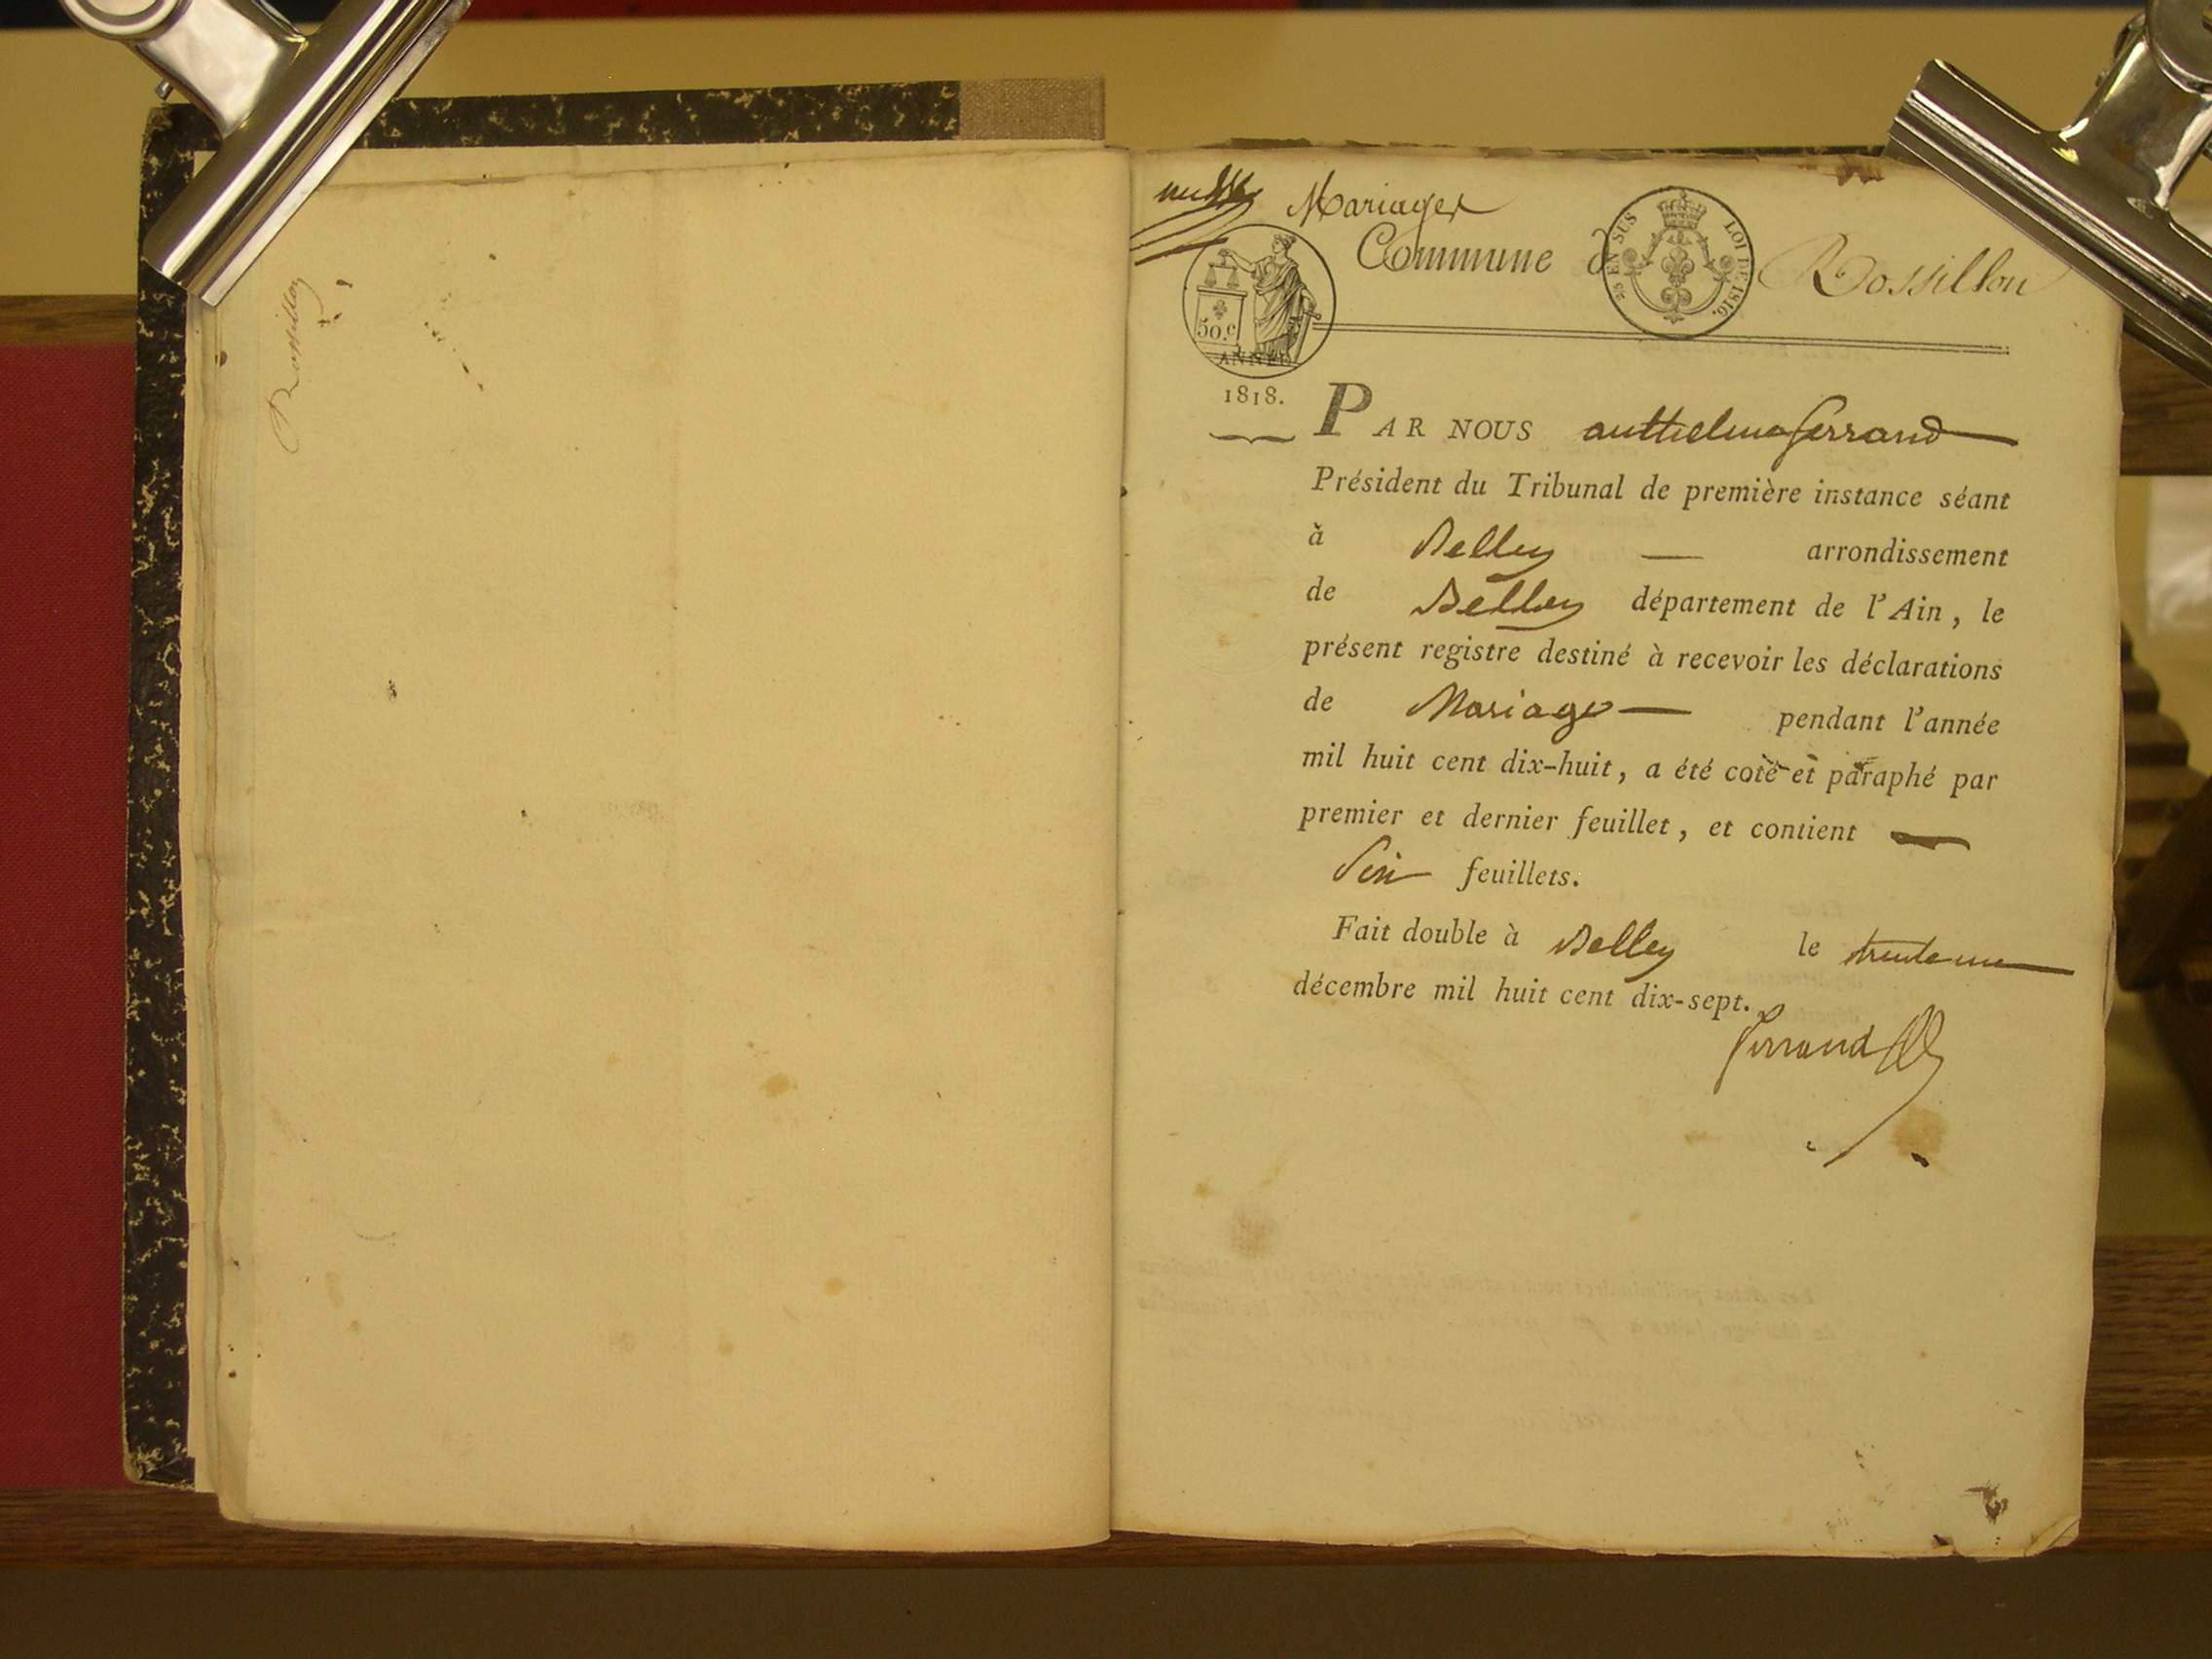 Rossillon
Mariages
Commune d
Rossillon
EN SUS LOI DE 1816.
50.c
ANNÉE
1818.
PAR NOUS anthelme ferrand
Président du Tribunal de première instance séant
à Belley — arrondissement
de Belley département de l'Ain, le
présent registre destiné à recevoir les déclarations
de Mariage — pendant l'année
mil huit cent dix-huit, a été coté et paraphé par
premier et dernier feuillet, et contient —
Six feuillets.
Fait double à Belley le trente un
décembre mil huit cent dix-sept.
ferrand